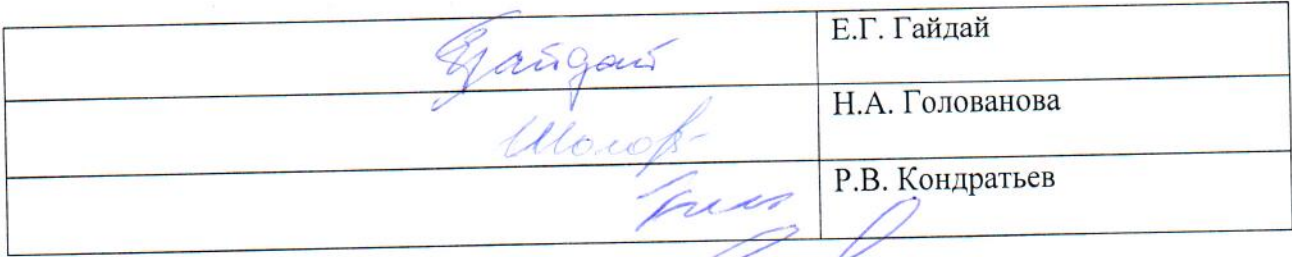 Гайдай Е.Г. Гайдай
Н.А. Голованова
Р.В. Кондратьев